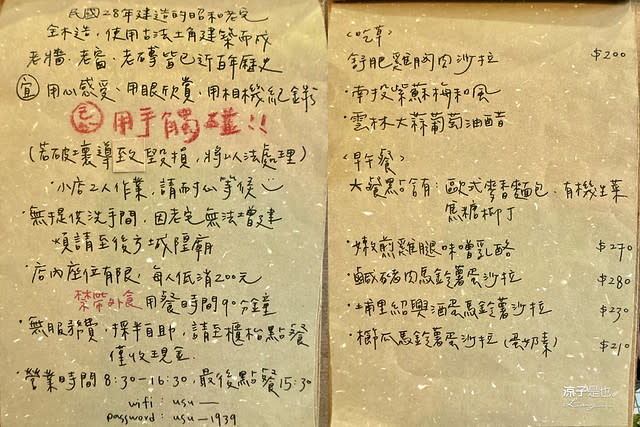 民國28年建造的昭和老宅
全木造，使用古法土角建築而成
老牆、老窗、老磚皆已近百年歷史
宜 用心感受、用眼欣賞、用相機紀錄
忌 用手觸碰!!
(若破壞導致毀損，將以法處理)
·小店2人作業，請耐心等候
·無提供洗手間，因老宅無法增建
煩請至後方城隍廟
·店內座位有限，每人低消200元
禁帶外食 用餐時間90分鐘
·無服務費，採半自助，請至櫃枱點餐
僅收現金
·營業時間 8:30-16:30，最後點餐15:30
wifi: usu —
password: usu — 1939
<吃草>
舒肥雞胸肉沙拉 $200
·南投紫蘇梅和風
·雲林大蒜葡萄油醋
<早午餐>
大餐點餡：歐式麥香麵包、有機生菜
焦糖柳丁
·嫩煎雞腿味噌乳酪 $270
·鹹豬肉馬鈴薯蛋沙拉 $280
·埔里紹興酒蛋馬鈴薯沙拉 $230
·櫛瓜馬鈴薯蛋沙拉 (蛋奶素) $210
涼子是也